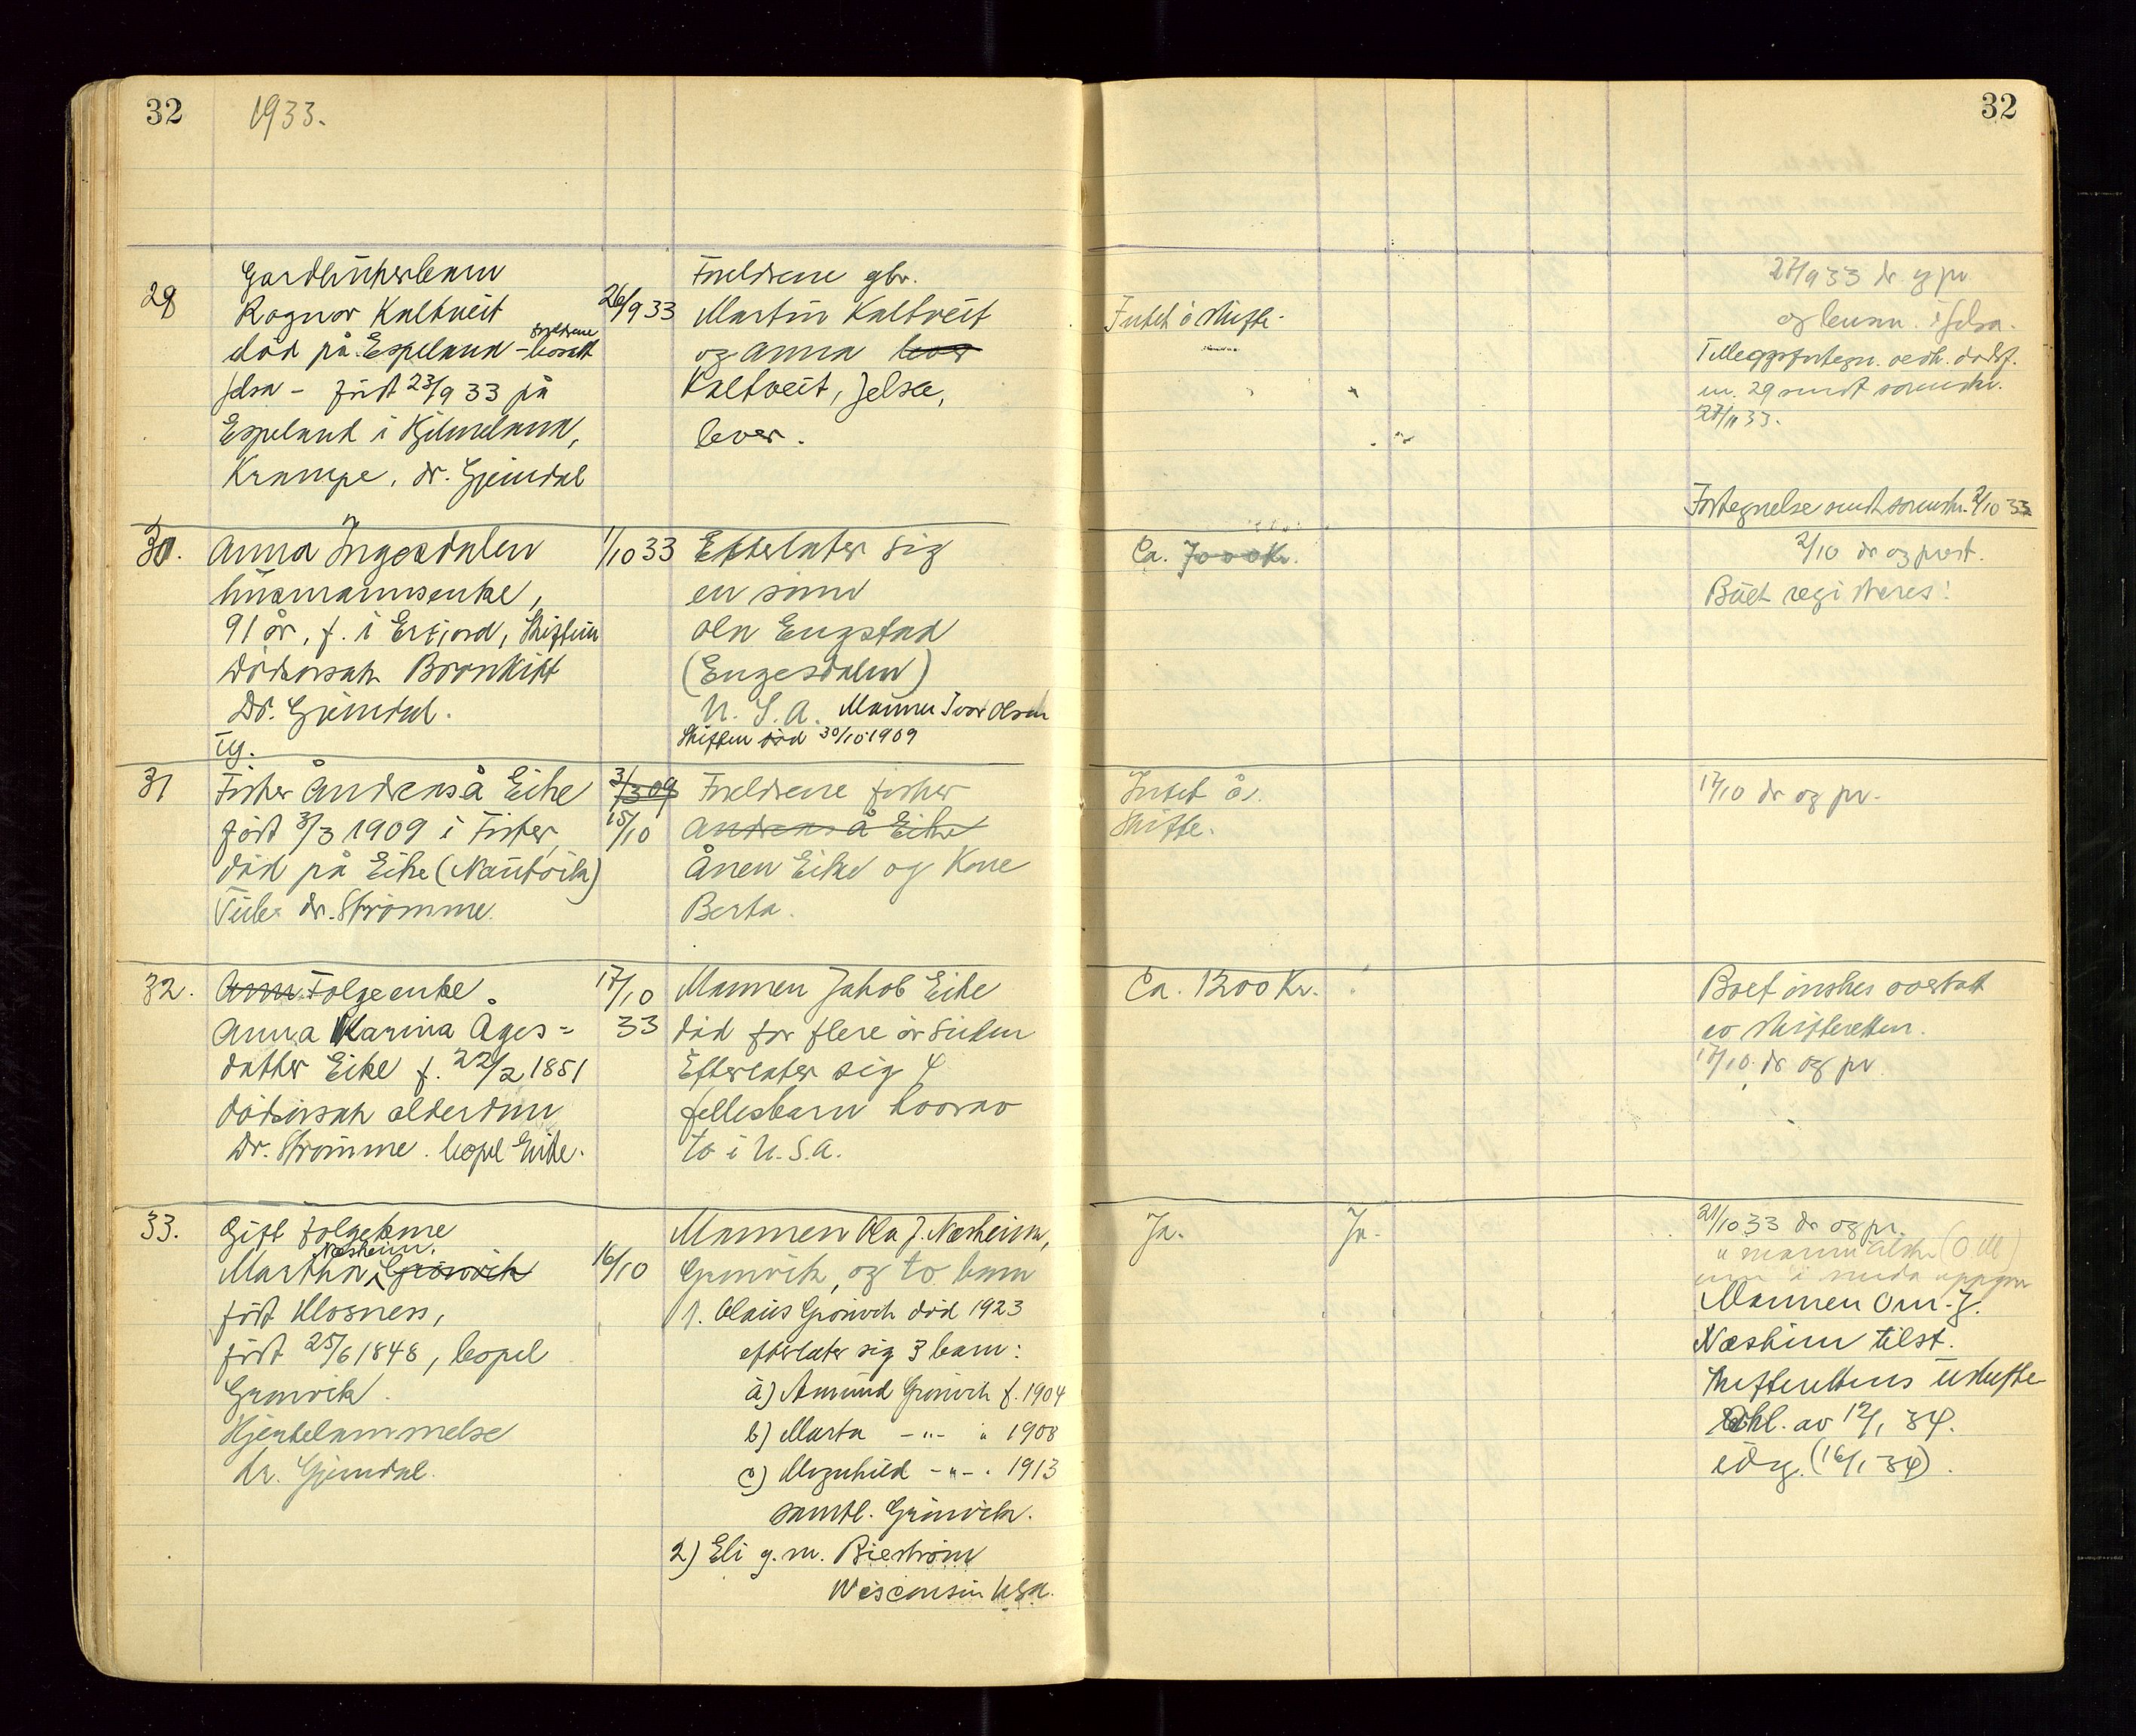 32
1933.
32
29
Gardbrukerbarn
Ragnar Kaltveit
død på Espeland - foreldrene bosatt
Jelsa - født 23/9 33 på
Espeland i Hjelmeland,
Krampe, dr. Gjendal
26/9 33
Foreldrene gbr.
Martin Kaltveit
og Anna lever
Kaltveit, Jelsa,
lever.
Intet å skifte.
27/9 33 dr og pr
og lensm. i Jelsa.
Tilleggsfortegn. vedk. dødsf.
nr. 29 sendt sorenskr.
27/11 33.
Fortegnelse sendt sorenskr. 2/10 33
30.
Anna Ingesdalen
husmannsenke,
91 år, f. i Erfjord, Skiftun
Dødsorsak Bronkitt
Dr. Gjendal.
1/10 33
Efterlater sig
en sønn
Ola Engstad
(Engesdalen)
U. S. A. Mannen Ivar Olsen
Skiftun død 30/10 1909
Ca. 7000 Kr.
2/10 dr og prest.
Buet registreres!
31
Ug.
Fisker Andreas Å Eike
født 3/3 1909 i Fister,
død på Eike (Nautvik)
Tub. dr. Strømme.
3/3 09
15/10
Foreldrene fisker
Andreas Å Eike
Ånen Eike og Kone
Berta.
Intet å
skifte.
17/10 dr og pr.
32.
Ann Folgeenke
Anna Karina Åges=
datter Eike f. 22/2 1851
dødsorsak alderdom
Dr. Strømme. bopel Eike.
17/10
33
Mannen Jakob Eike
død for flere år siden
Efterlater sig 4
fellesbarn hvorav
to i U.S.A.
Ca. 1200 Kr.
Boet ønskes overtatt
av skifteretten.
17/10 dr og pr.
33.
Gift folgekone
Martha Næsheim, Grønvik
født Mosness,
født 25/6 1848, bopel
Grønvik.
Hjertelammelse
dr. Gjendal.
16/10
Mannen Ola J. Næsheim,
Grønvik, og to barn
1. Claus Grønvik død 1923
efterlater sig 3 barn:
a) Amund Grønvik f. 1904
b) Marta - " - " 1908
c) Magnhild - " - " 1913
samtl. Grønvik.
2) Eli g. m. Bieström
Wisconsin USA.
Ja.
Ja.
21/10 33 dr og pr.
Mannen Om. J.
Næsheim tilst.
skifterettens uskifte
av 12/1 34.
(16/1 34).